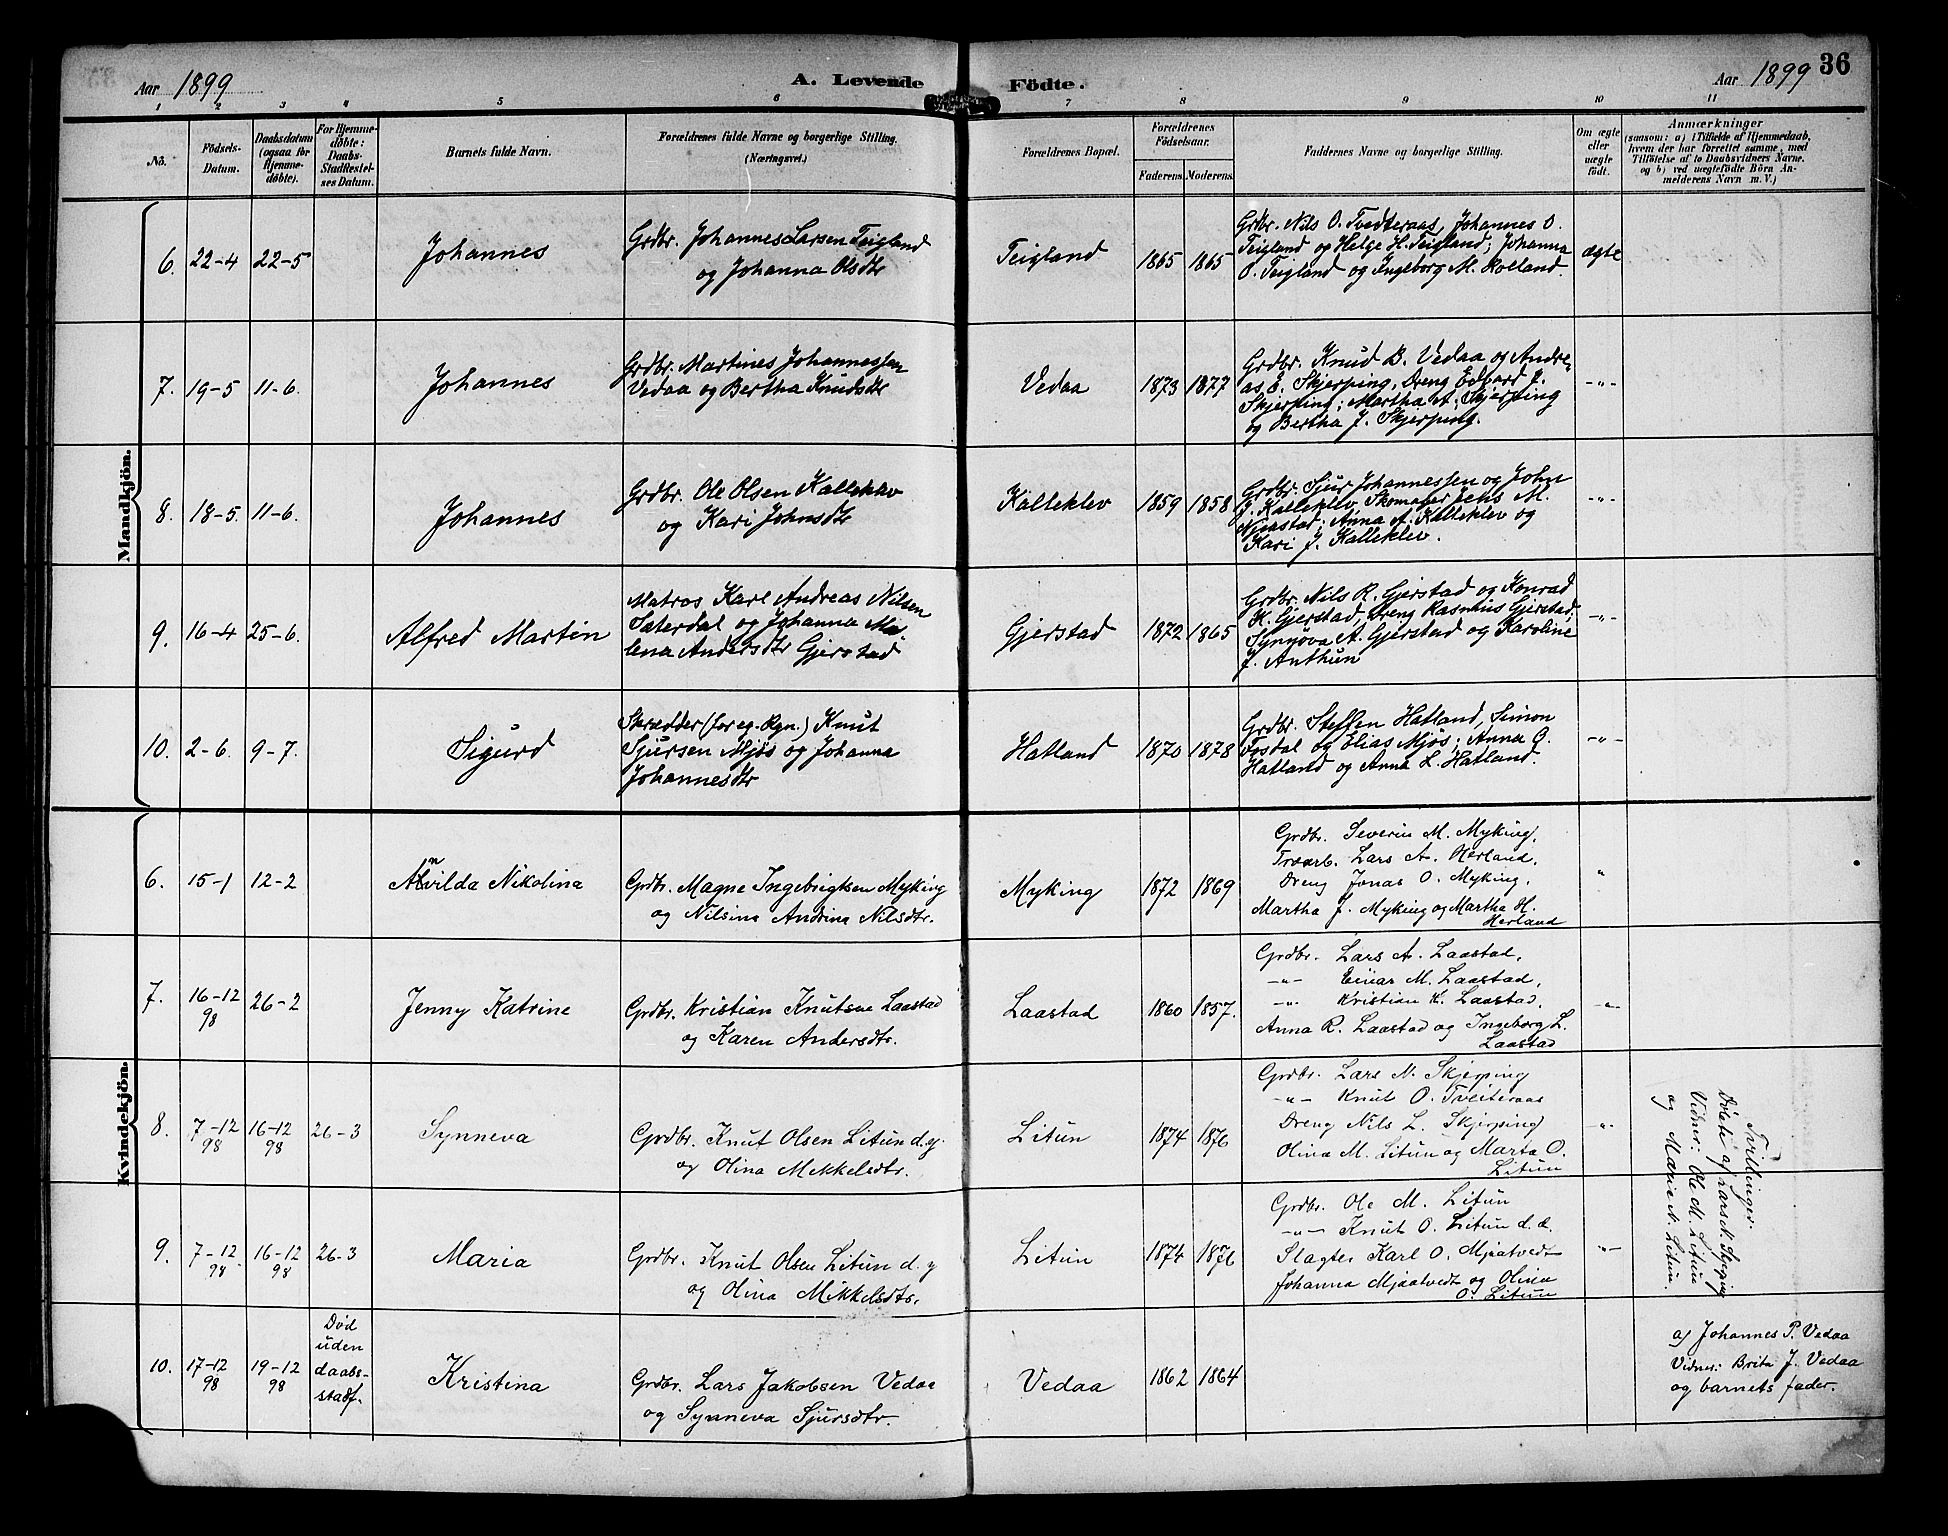 Aar 1899
A. Levende Födte.
Aar 1899
36
1 2 3 4 5 6 7 8 9 10 11
No.
Födsels-
Datum.
Daabsdatum
(ogsaa for
Hjemme-
döbte).
For Hjemme-
döbte:
Daabs-
Stadfæstel-
ses Datum.
Barnets fulde Navn.
Forældrenes fulde Navne og borgerlige Stilling.
(Næringsvei.)
Forældrenes Bopæl.
Forældrenes
Födselsaar.
Faderens. Moderens.
Faddernes Navne og borgerlige Stilling.
Om ægte
eller
uægte
födt.
Anmærkninger
(saasom: a) i Tilfælde af Hjemmedaab,
hvem der har forrettet samme, med
Tilföielse af to Daabsvidners Navne,
og b) ved uægtefödte Börn An-
melderens Navn m. V.)
Mandkjön.
6. 22-4 22-5
Johannes
Grdbr. Johannes Larsen Teigland
og Johanna Olsdtr
Teigland
1865 1865
Grdbr. Nils O. Tvedteraas, Johannes O.
Teigland og Helge H. Teigland; Johanna
O. Teigland og Ingeborg M. Rolland.
ægte
7. 19-5 11-6.
Johannes
Grdbr. Martines Johannessen
Vedaa og Bertha Knudsdtr
Vedaa
1873 1877
Grdbr. Knud B. Vedaa og Andre-
as E. Skjerping, Dreng Edvard J.
Skjerping; Martha A. Skjerping
og Bertha J. Skjerping.
-"-
8. 18-5. 11-6.
Johannes
Grdbr. Ole Olsen Kalleklev
og Kari Johnsdtr
Kalleklev
1859 1858
Grdbr. Sjur Johannessen og John
J. Kalleklev, Skomager Jens M.
Njaastad; Anna A. Kalleklev og
Kari J. Kalleklev.
-"-
9. 16-4 25-6.
Alfred Martin
Matros Karl Andreas Nilsen
Saterdal og Johanna Ma-
lena Andersdtr Gjerstad
Gjerstad
1872 1865
Grdbr. Nils R. Gjerstad og Konrad
K. Gjerstad, Dreng Rasmus Gjerstad,
Synnöva A. Gjerstad og Karoline
J. Anthun
-"-
10. 2-6. 9-7.
Sigurd
Skrædder (for eg. Rgn.) Knut
Sjursen Mjös og Johanna
Johannesdtr
Hatland
1870 1878
Grdbr. Steffen Hatland, Simon
Fosdal og Elias Mjös; Anna O.
Hatland og Anna L. Hatland.
-"-
Kvindekjön.
6. 15-1 12-2
Alvilda Nikolina
Grdbr. Magne Ingebrigtsen Myking
og Nilsina Andrina Nilsdtr.
Myking
1872 1869
Grdbr. Severin M. Myking,
Lars A. Herland,
Dreng Jonas O. Myking,
Martha J. Myking og Martha H.
Herland
"
7. 16-12 98 26-2
Jenny Katrine
Grdbr. Kristian Knutsen Laastad
og Karen Andersdtr.
Laastad
1860 1857.
Grdbr. Lars A. Laastad,
-"- Einar M. Laastad,
-"- Kristian K. Laastad,
Anna R. Laastad og Ingeborg L.
Laastad
-"-
8. 7-12 98 16-12 98 26-3
Synneva
Grdbr. Knut Olsen Litun d.y.
og Olina Mekkelsdtr.
Litun
1874 1876
Grdbr. Lars N. Skjerping
-"- Knut O. Tveiteraas
Dreng Nils L. Skjerping
Olina M. Litun og Marta O.
Litun
-"-
Tvillinger.
Döbte af Lars N. Skjerping
Vidner: Ole M. Litun
og Marie N. Litun.
9. 7-12 98. 16-12 98 26-3
Maria
Grdbr. Knut Olsen Litun d.y
og Olina Mikkelsdtr.
Litun
1874 1876
Grdbr. Ole M. Litun
-"- Knut O. Litun d.æ.
Slagter Karl O. Mjaatvedt
Johanna Mjaatvedt og Olina
O. Litun
-"-
10. 17-12 98 19-12 98
Död
uden
daabs-
stadf.
Kristina
Grdbr. Lars Jakobsen Vedaa
og Synneva Sjursdtr.
Vedaa
1862 1864
a) Johannes P. Vedaa
Vidner: Brita J. Vedaa
og barnets fader.